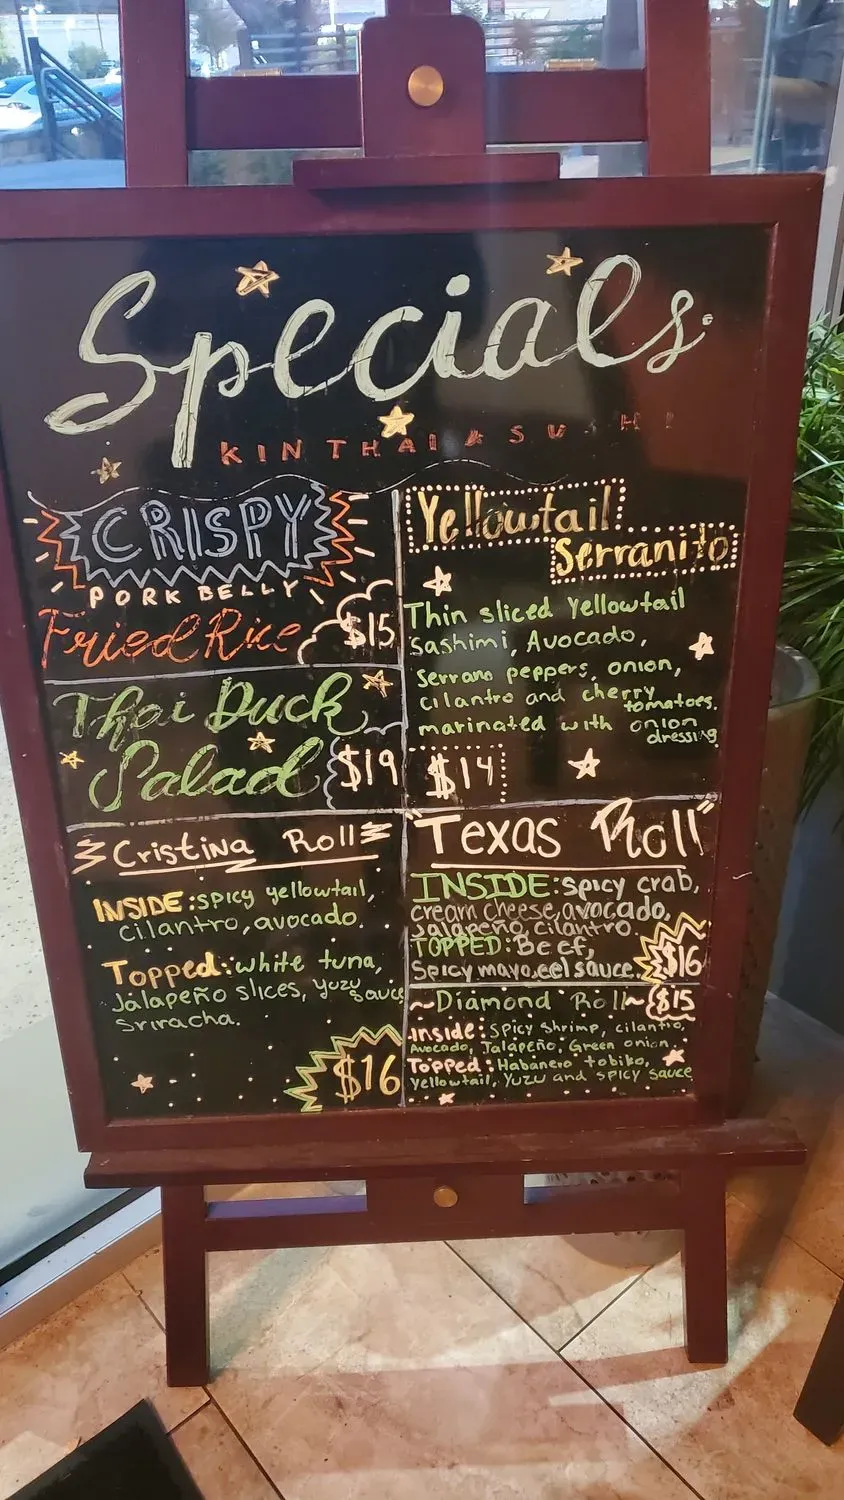 Specials
KIN THAI & SUSHI
CRISPY
PORK BELLY
Fried Rice $15
Thai Duck
Salad $19
Cristina Roll
INSIDE: spicy yellowtail,
cilantro, avocado.
Topped: white tuna,
Jalapeño slices, yuzu sauce
Sriracha.
$16
Yellowtail
Serranito
Thin sliced Yellowtail
Sashimi, Avocado,
Serrano peppers, onion,
cilantro and cherry
tomatoes.
marinated with onion
dressing
$14
"Texas Roll"
INSIDE: spicy crab,
cream cheese, avocado,
Jalapeño, cilantro.
TOPPED: Beef,
Spicy mayo, eel sauce. $16
~Diamond Roll~ $15
Inside: Spicy Shrimp, cilantro,
Avocado, Jalapeño, Green onion.
Topped: Habanero tobiko,
Yellowtail, Yuzu and spicy sauce